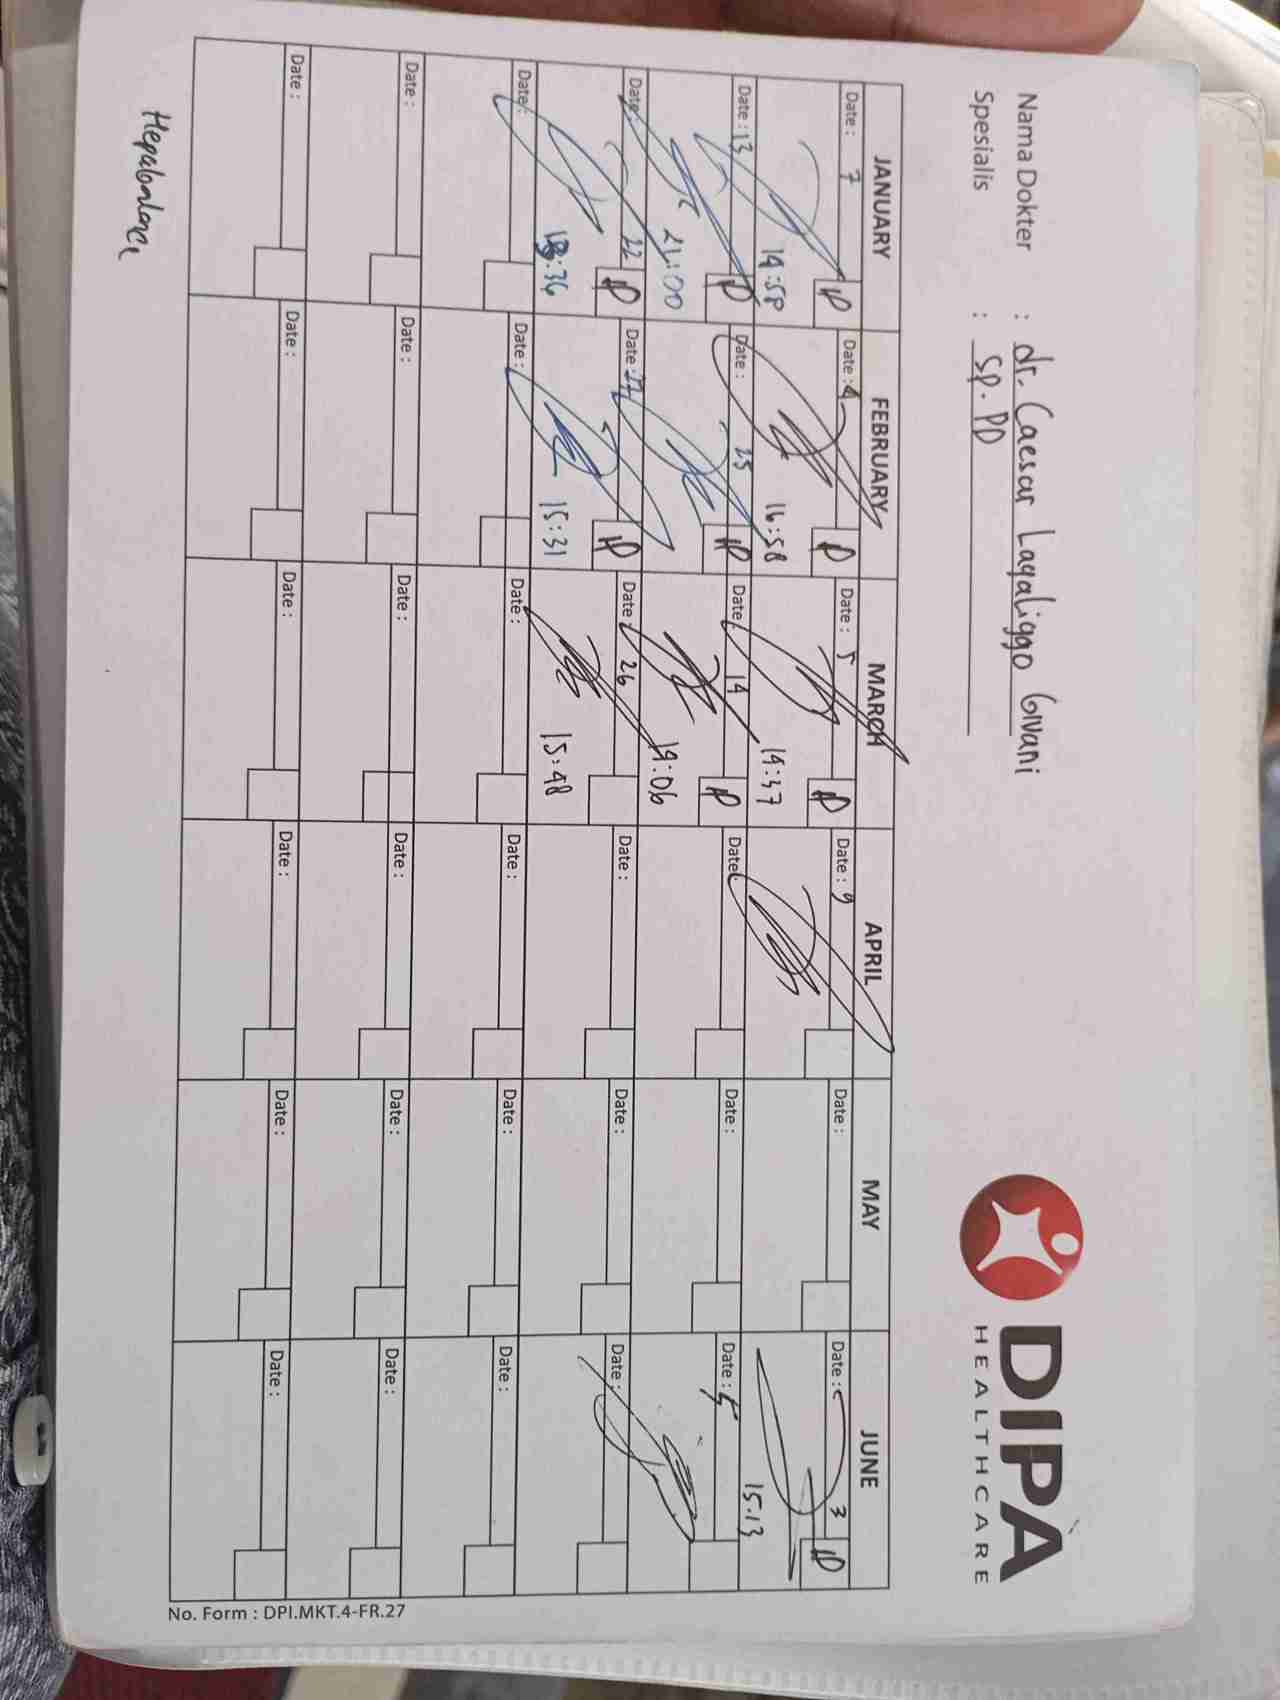 Nama Dokter : dr. Caesar Lagaliggo Givani
Spesialis : Sp. PD
DIPA
HEALTHCARE
JANUARY FEBRUARY MARCH APRIL MAY JUNE
Date : 7 Date : 4 Date : 5 Date : 9 Date : Date : 3
14:58 16:58 14:37 15.13
Date : 13 Date : 25 Date : 14 Date : Date : Date : 5
21:00 19:06
Date : 22 Date : 27 Date : 26 Date : Date : Date :
18:36 15:31 15:48
Date : Date : Date : Date : Date : Date :
Date : Date : Date : Date : Date : Date :
Date : Date : Date : Date : Date : Date :
No. Form : DPI.MKT.4-FR.27